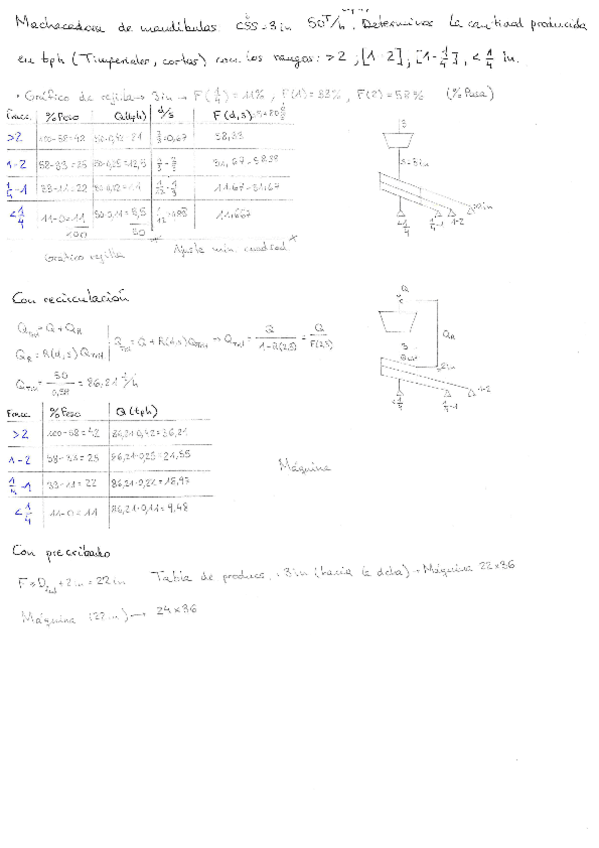 Machacadora de mandíbulas CSS=3in 50 T/h. Determinar la cantidad producida
en tph (T imperiales, cortas) con los rangos: >2 ; [1-2] ; [1-1/4] , <1/4 in.
• Gráfico de rejilla → 3in → F(1/4) = 11% , F(1) = 33% , F(2) = 58% (% Pasa)
Fracc. %Peso Q(tph) d/s F(d,s)
>2 100-58=42 50·0,42=21 2/3=0,67 58,33
1-2 58-33=25 50·0,25=12,5 1/3-2/3
1/4-1 33-11=22 1/12-1/3 11.67-31.67
<1/4 11-0=11 50·0,11=5,5 11.667
100 50
Gráfico rejilla Ajuste mín. cuadrad
s=3in
<1/4 1/4-1 1-2
Con recirculación
Q_Tot=Q+Q_R
Q_R=R(d,s)Q_Tot
Q_Tot=Q+R(d,s)Q_Tot → Q_Tot = Q/(1-R(2,3)) = Q/F(2,3)
Q_Tot = 50/0,58 = 86,21 T/h
Q
Q_R
2in
<1/4 1/4-1 1-2
Fracc. %Peso Q (tph)
>2 100-58=42 86,21·0,42=36,21
1-2 58-33=25 86,21·0,25=21,55
1/4-1 33-11=22 86,21·0,22=18,97
<1/4 11-0=11 86,21·0,11=9,48
Máquina
Con precribado
+2in = 22in Tabla de produc. 3in (hacia la dcha) → Máquina 22x36
Máquina (22in) → 24x36